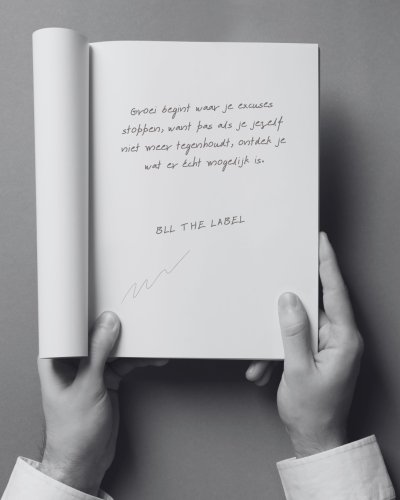 Groei begint waar je excuses
stoppen, want pas als je jezelf
niet meer tegenhoudt, ontdek je
wat er écht mogelijk is.
BLL THE LABEL